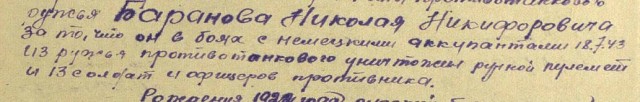 ружья Баранова Николая Никифоровича
за то, что он в боях с немецкими аккупантами 18.7.43
из ружья противотанкового уничтожил ручной пулемет
и 13 солдат и офицеров противника.
Рождения год